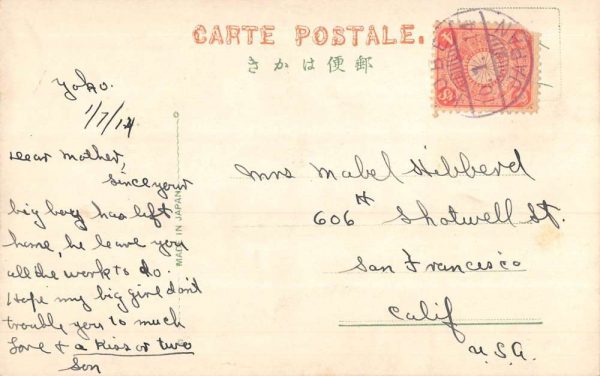 CARTE POSTALE.
きかは便郵
MADE IN JAPAN
Yoko.
1/7/14
Dear Mother,
Since your
big boy has left
home, he leave you
all the work to do.
Hope my big girl don't
trouble you to much
Love & a Kiss or two
Son
Mrs Mabel Hibberd
606 Shotwell St.
San Francisco
Calif
U.S.A.